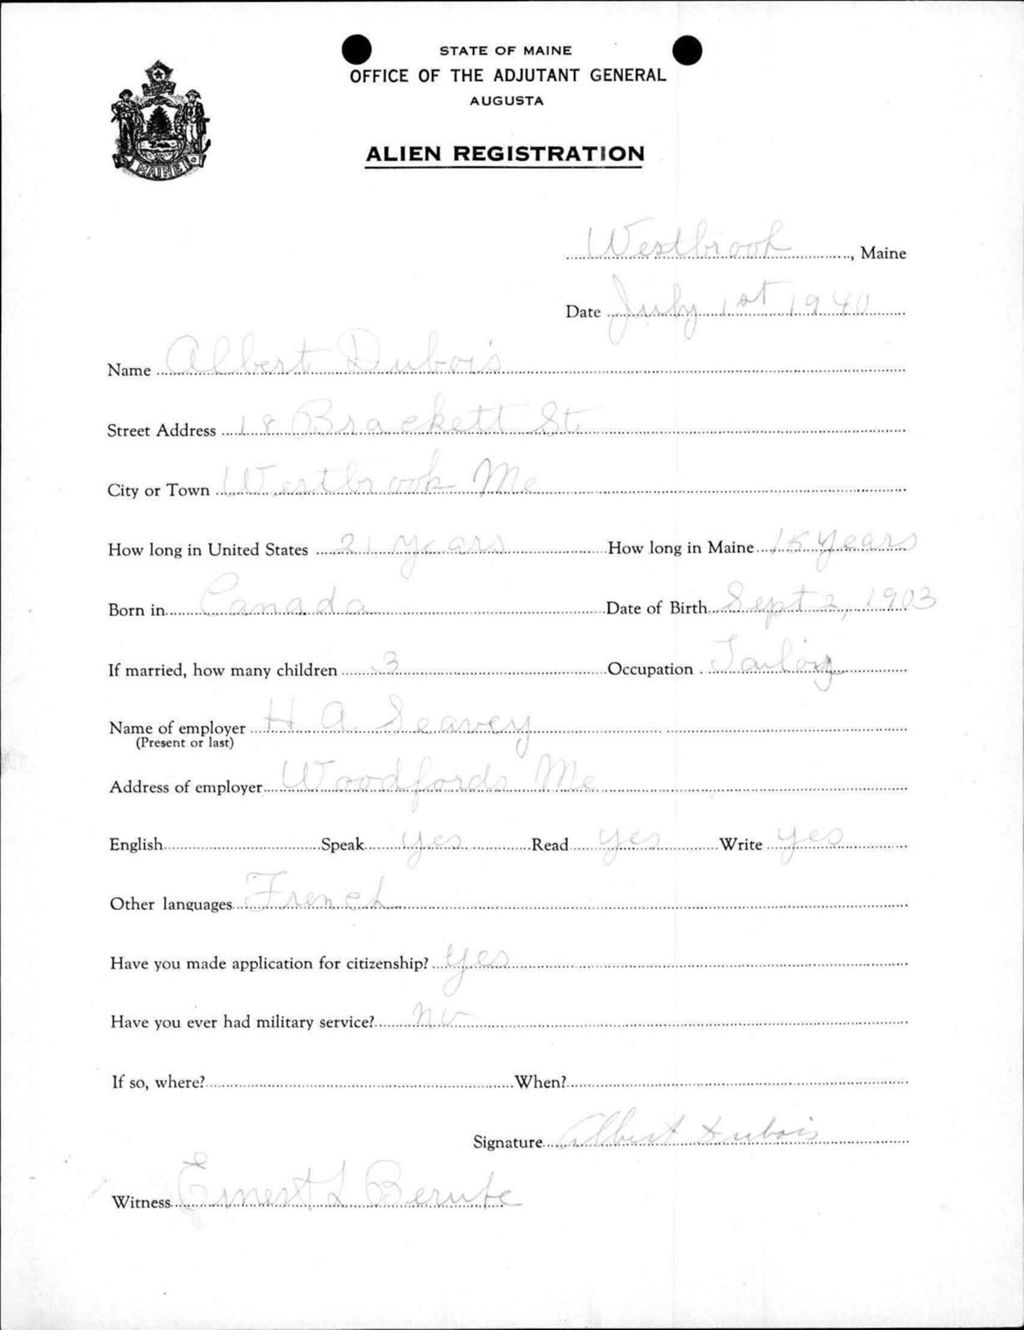 STATE OF MAINE
OFFICE OF THE ADJUTANT GENERAL
AUGUSTA
ALIEN REGISTRATION
MAINE
Westbrook, Maine
Date July 1st 1940
Name Albert Dubois
Street Address 18 Brackett St.
City or Town Westbrook Me
How long in United States 21 years How long in Maine 15 years
Born in Canada Date of Birth Sept 2, 1903
If married, how many children 3 Occupation
Name of employer H A. Seavey
(Present or last)
Address of employer Woodfords Me
English Speak yes Read yes Write yes
Other languages French
Have you made application for citizenship? yes
Have you ever had military service? no
If so, where? When?
Signature Albert Dubois
Witness Ernest L Berube